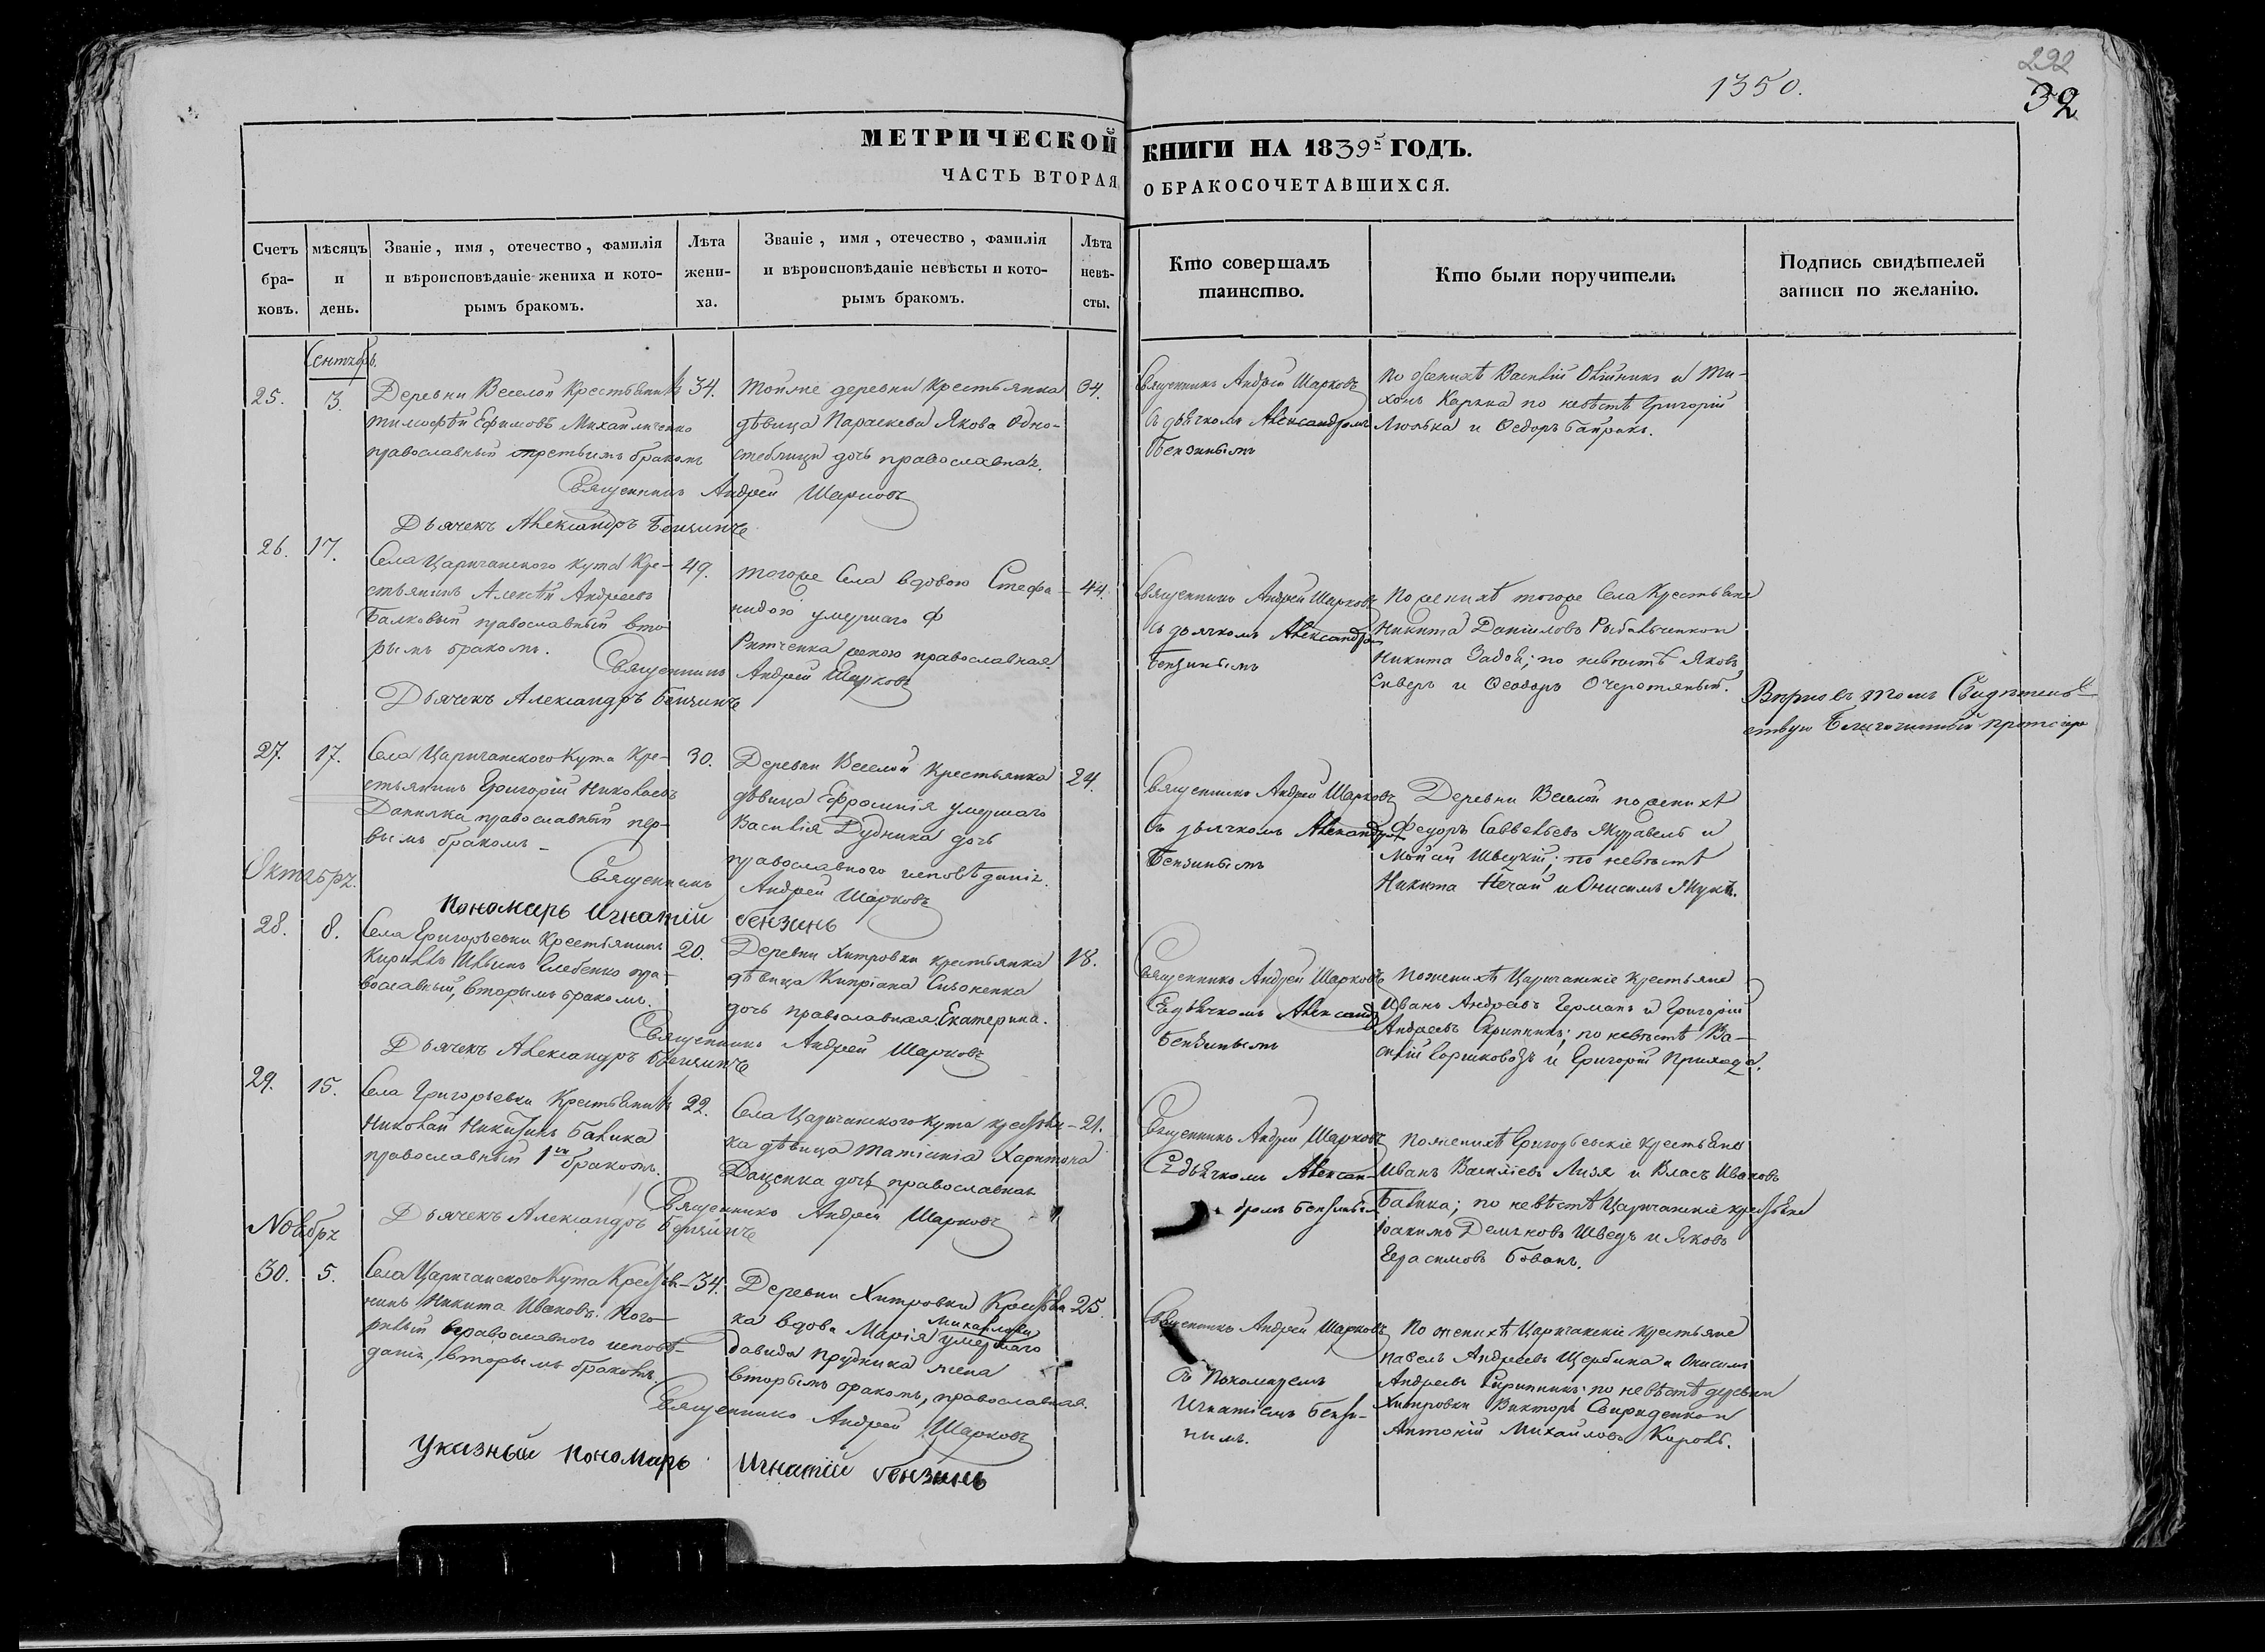 292
1350.
32
МЕТРИЧЕСКОЙ КНИГИ НА 1839й ГОДЪ.
ЧАСТЬ ВТОРАЯ О БРАКОСОЧЕТАВШИХСЯ.
Счетъ бра-ковъ.
мѣсяцъ и день.
Званіе, имя, отечество, фамилія
и вѣроисповѣданіе жениха и кото-
рымъ бракомъ.
Лѣта жени-ха.
Званіе, имя, отечество, фамилія
и вѣроисповѣданіе невѣсты и кото-
рымъ бракомъ.
Лѣта невѣ-сты.
Кто совершалъ
таинство.
Кто были поручители.
Подпись свидѣтелей
записи по желанію.
Сентябрь.
25. 3.
Деревни Веселой Крестьянинъ 34.
Тимофѣй Ефимовъ Михайличенко
православный третьимъ бракомъ
Тойже деревни крестьянка 34.
дѣвица Параскева Якова Одно-
дочь православная.
Священникъ Андрей Шарковъ
съ дьячкомъ Александромъ
Бензинымъ
По женихѣ Василій и Ти-
хонъ по невѣстѣ Григорій
Любка и Ѳедоръ
Священникъ Андрей Шарковъ
Дьячекъ Александръ Бензинъ
26. 17.
Села Царичанскаго Кута Кре- 49.
стьянинъ Алексѣй Андреевъ
Балковый православный вто-
рымъ бракомъ.
Тогоже Села вдовою Стефа- 44.
нидою умершаго Ф
женою православная.
Священникъ Андрей Шарковъ
съ дьячкомъ Александромъ
Бензинымъ
По женихѣ тогоже Села Крестьяне
Никита Даниловъ
Никита Задоя; по невѣстѣ Яковъ
Сиверъ и Ѳеодоръ Очеретяный.
Священникъ Андрей Шарковъ
Дьячекъ Александръ Бензинъ
Вѣрно въ томъ Свидѣтель-
ствую Благочинный
27. 17.
Села Царичанского Кута Кре- 30.
стьянинъ Григорій Николаевъ
Данилка православный пер-
вымъ бракомъ
Деревни Веселой Крестьянка 24.
дѣвица Ефросинія умершаго
Василія Дудника дочь
православнаго исповѣданія.
Священникъ Андрей Шарковъ
съ дьячкомъ Александромъ
Бензинымъ
Деревни Веселой по женихѣ
Федоръ Савельевъ Журавель и
Мойсей Швецкій; по невѣстѣ
Никита Нечай и Онисимъ Жукъ.
Священникъ Андрей Шарковъ
Пономарь Игнатій бензинъ
Октябрь.
28. 8.
Села Григорьевки Крестьянинъ 20.
Кириллъ Ильинъ Глебенко пра-
вославный, вторымъ бракомъ.
Деревни Хитровки крестьянка 18.
дѣвица Кипріана Сизоненка
дочь православная. Екатерина.
Священникъ Андрей Шарковъ
Съ дьячкомъ Александ
Бензинымъ
По женихѣ Царичанскіе крестьяне
Иванъ Андреевъ Германъ и Григорій
Андреевъ Скрипникъ; по невѣстѣ Ва-
силій Горшковозъ и Григорій Приходя.
Священникъ Андрей Шарковъ
Дьячекъ Александръ Бензинъ
29. 15.
Села Григорьевки Крестьянинъ 22.
Николай Никитинъ Бавика
православный 1мъ бракомъ.
Села Царичанского Кута крестьян- 21.
ка дѣвица Татіанія Харитона
Даценка дочь православная
Священникъ Андрей Шарковъ
Съ дьячкомъ Алексан-
дромъ Бензинымъ
По женихѣ Григорьевскіе крестьяне
Иванъ Василіевъ Лизя и Власъ Ивановъ
Бавика; по невѣстѣ Царичанскіе крестьяне
Іоакимъ Демяновъ Швецъ и Яковъ
Герасимовъ Бованъ.
Священникъ Андрей Шарковъ
Дьячекъ Александръ Бензинъ
Ноябрь
30. 5.
Села Царичанского Кута Крестья- 34.
нинъ Никита Ивановъ
православного исповѣ-
данія, вторымъ бракомъ.
Деревни Хитровки Крестьян 25.
ка вдова Марія Михайлова умершаго
Давида Прудника жена
вторымъ бракомъ, православная.
Священникъ Андрей Шарковъ
съ Пономаремъ
Игнатіемъ Бензи-
нымъ.
По женихѣ Царичанскіе крестьяне
Павелъ Андреевъ Щербина и Онисимъ
Андреевъ Скрипникъ; по невѣстѣ деревни
Хитровки Викторъ Свириденко и
Антоній Михайловъ
Священникъ Андрей Шарковъ
Указный пономарь Игнатій бензинъ